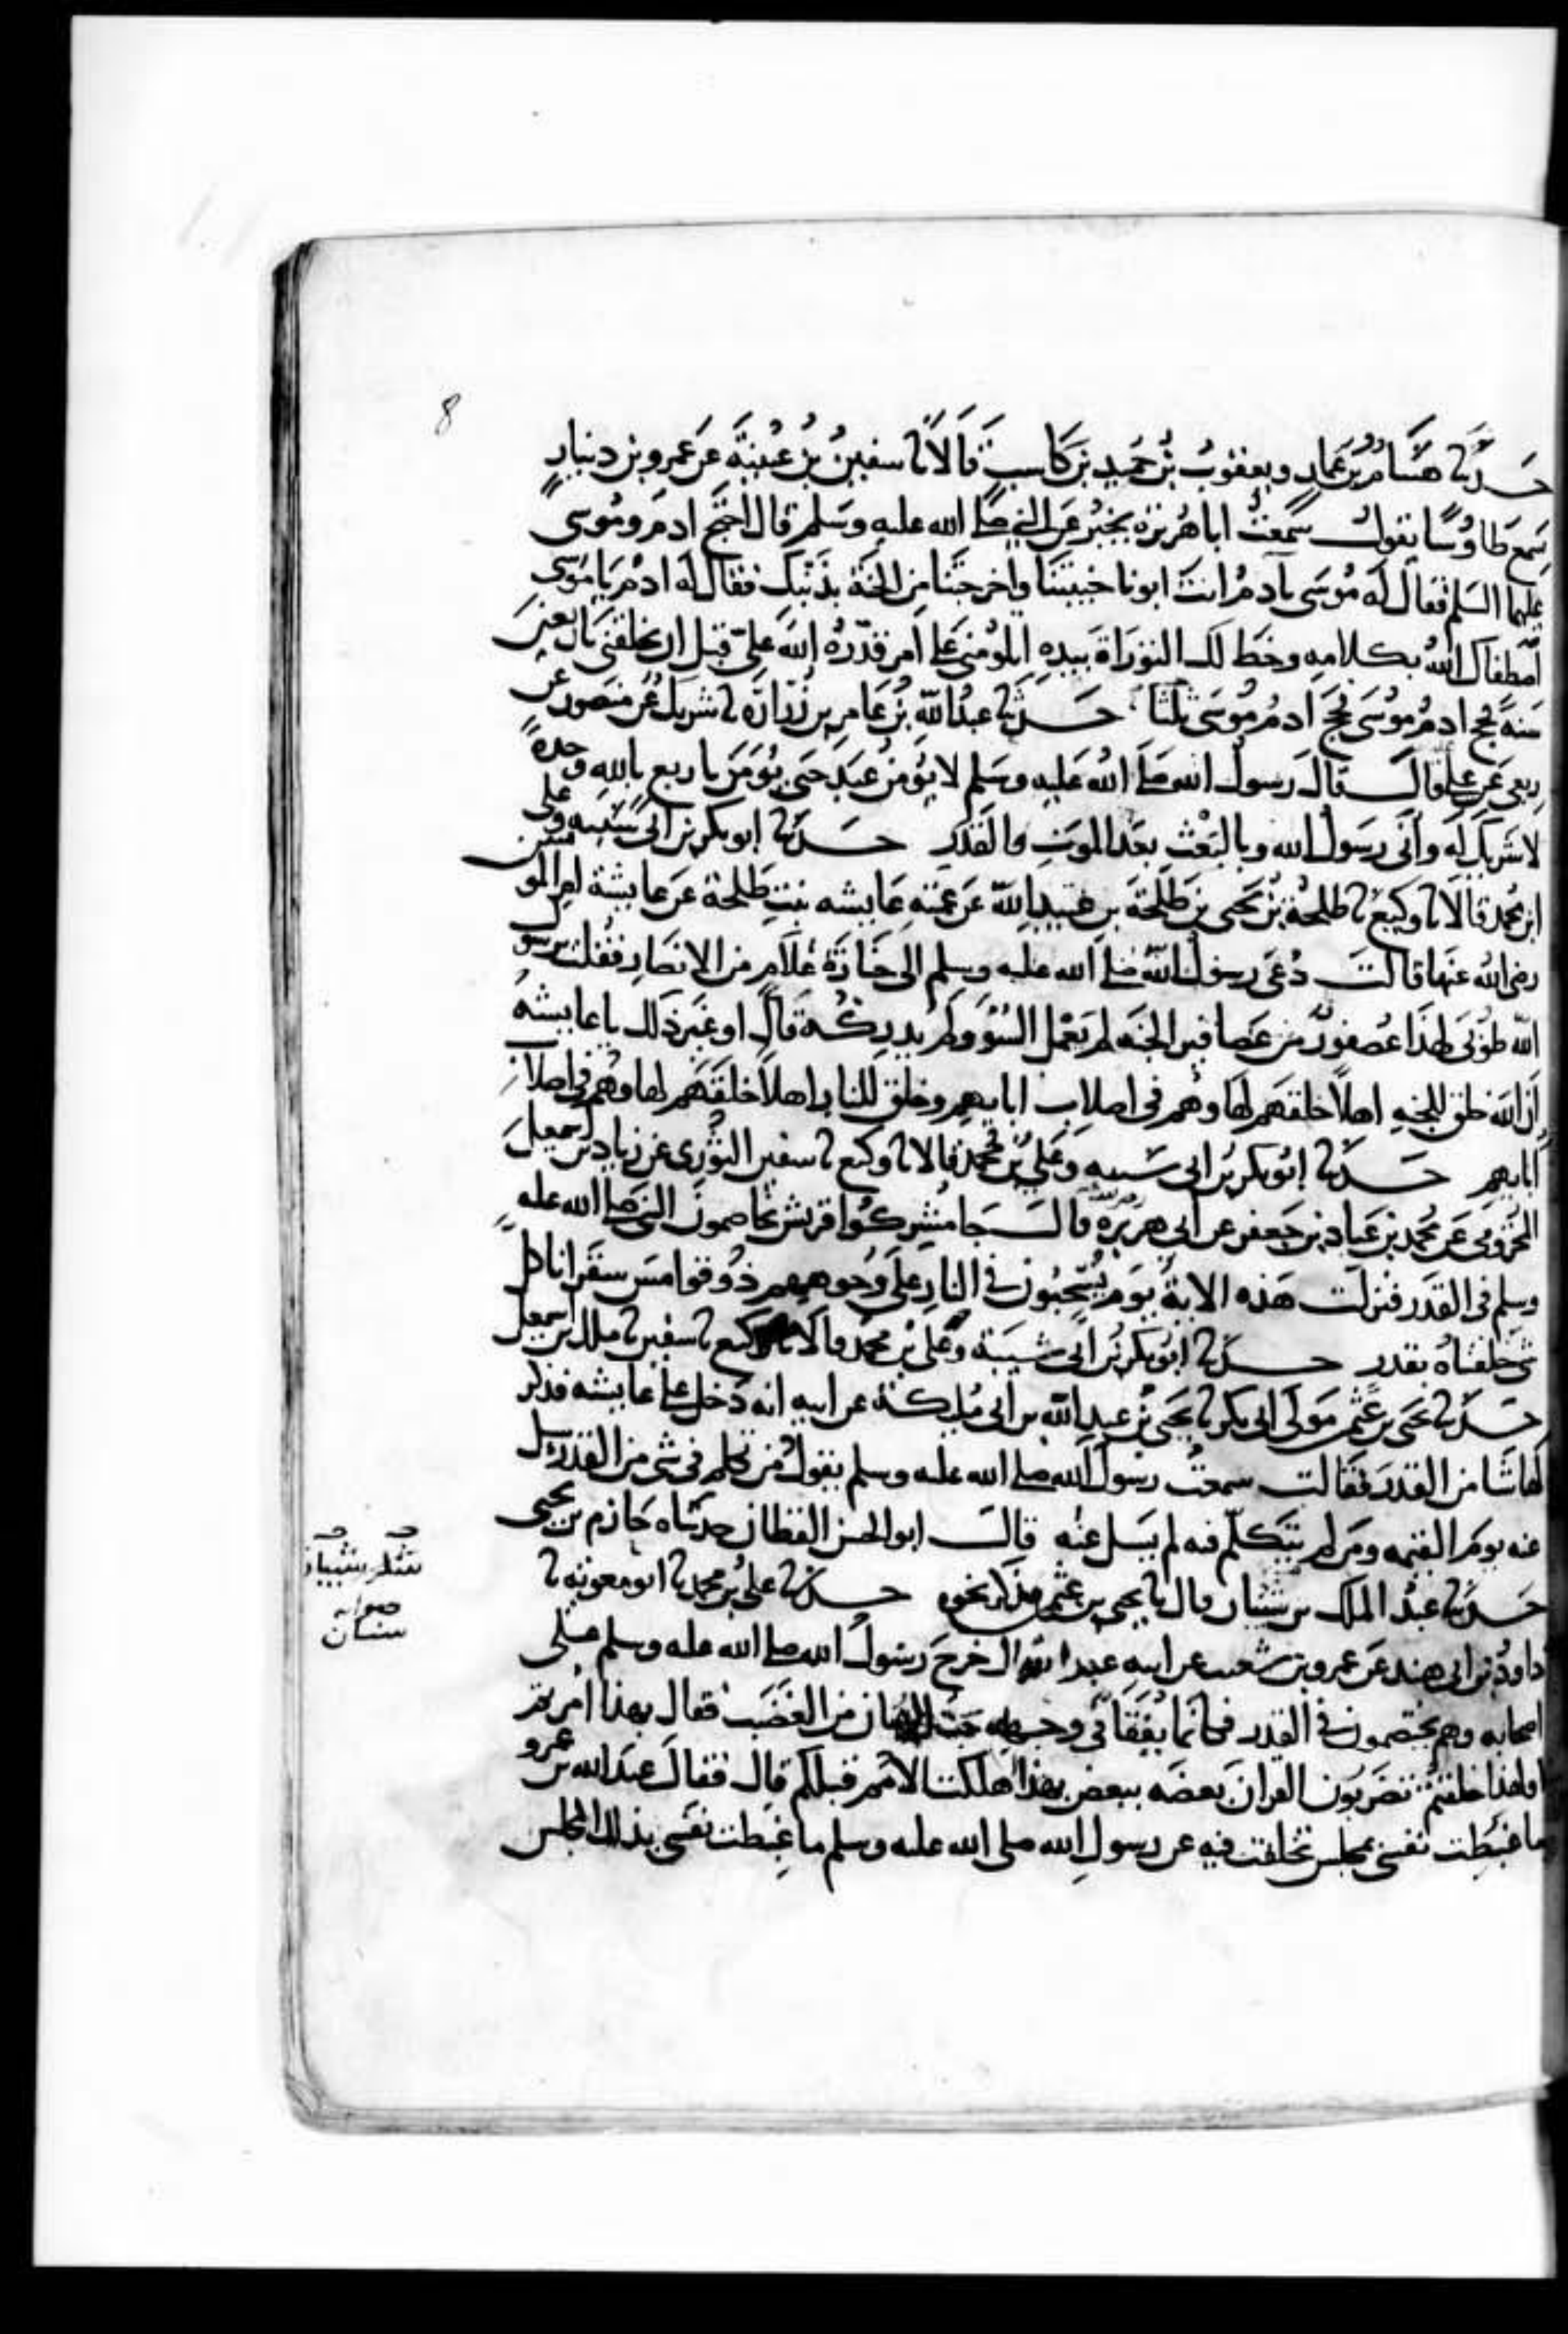 8
حدثنا هشام بن عمار ويعقوب بن حميد بن كاسب قالا ثنا سفين بن عيينة عن عمرو بن دينار
سمع طاوسا يقول سمعت ابا هريرة يخبر عن النبي صلى الله عليه وسلم قال احتج ادم وموسى
عليهما السلم فقال له موسى يآدم انت ابونا خيبتنا واخرجتنا من الجنة بذنبك فقال له ادم يا موسى
اصطفاك الله بكلامه وخط لك التوراة بيده اتلومني على امر قدره الله علي قبل ان يخلقني باربعين
سنة فحج ادم موسى فحج ادم موسى ثلثا حدثنا عبد الله بن عامر بن زرارة ثنا شريك عن منصور عن
ربعي عن علي قال قال رسول الله صلى الله عليه وسلم لا يؤمن عبد حتى يؤمن باربع بالله وحده
لا شريك له واني رسول الله وبالبعث بعد الموت والقدر حدثنا ابو بكر بن ابي شيبه وعلى
ابن محمد قالا ثنا وكيع ثنا طلحة بن يحيى بن طلحة بن عبيد الله عن عمته عايشه بنت طلحة عن عايشة ام المومنين
رضي الله عنها قالت دعي رسول الله صلى الله عليه وسلم الى جنازة غلام من الانصار فقلت يرسول
الله طوبى لهذا عصفور من عصافير الجنه لم يعمل السوء ولم يدركه قال او غير ذلك يا عايشه
ان الله خلق للجنه اهلا خلقهم لها وهم في اصلاب ابايهم وخلق للنار اهلا خلقهم لها وهم في اصلاب
ابايهم حدثنا ابو بكر بن ابي شيبه وعلي بن محمد قالا ثنا وكيع ثنا سفين الثوري عن زياد بن اسمعيل
المخزومي عن محمد بن عباد بن جعفر عن ابي هريرة قال جا مشركوا قريش يخاصمون النبي صلى الله عليه
وسلم في القدر فنزلت هذه الاية يوم يسحبون في النار على وجوههم ذوقوا مس سقر انا كل
شي خلقناه بقدر حدثنا ابو بكر بن ابي شيبة وعلي بن محمد قالا ثنا وكيع ثنا سفين ثنا ملك بن اسمعيل
حدثنا يحيى بن عثمن مولى ابي بكر ثنا يحيى بن عبد الله بن ابي مليكة عن ابيه انه دخل على عايشه فذكر
لها شا من القدر فقالت سمعت رسول الله صلى الله عليه وسلم يقول من تكلم في شي من القدر سيل
عنه يوم القيمه ومن لم يتكلم فيه لم يسل عنه قال ابو الحسن القطان حدثناه حازم بن يحيى
حدثنا عبد الملك بن شيبان قال ثنا يحيى بن عثمن فذكر نحوه حدثنا علي بن محمد ثنا ابو معوية ثنا
شيبان
صوابه
سنان
داود بن ابي هند عن عمرو بن شعيب عن ابيه عبد الله قال خرج رسول الله صلى الله عليه وسلم على
اصحابه وهم يختصمون في القدر فكانما يفقا في وجهه حب الرمان من الغضب فقال بهذا امرتم
او لهذا خلقتم تضربون القران بعضه ببعض بهذا هلكت الامم قبلكم قال فقال عبد الله بن عمرو
ما غبطت نفسي بمجلس تخلفت فيه عن رسول الله صلى الله عليه وسلم ما غبطت نفسي بذلك المجلس